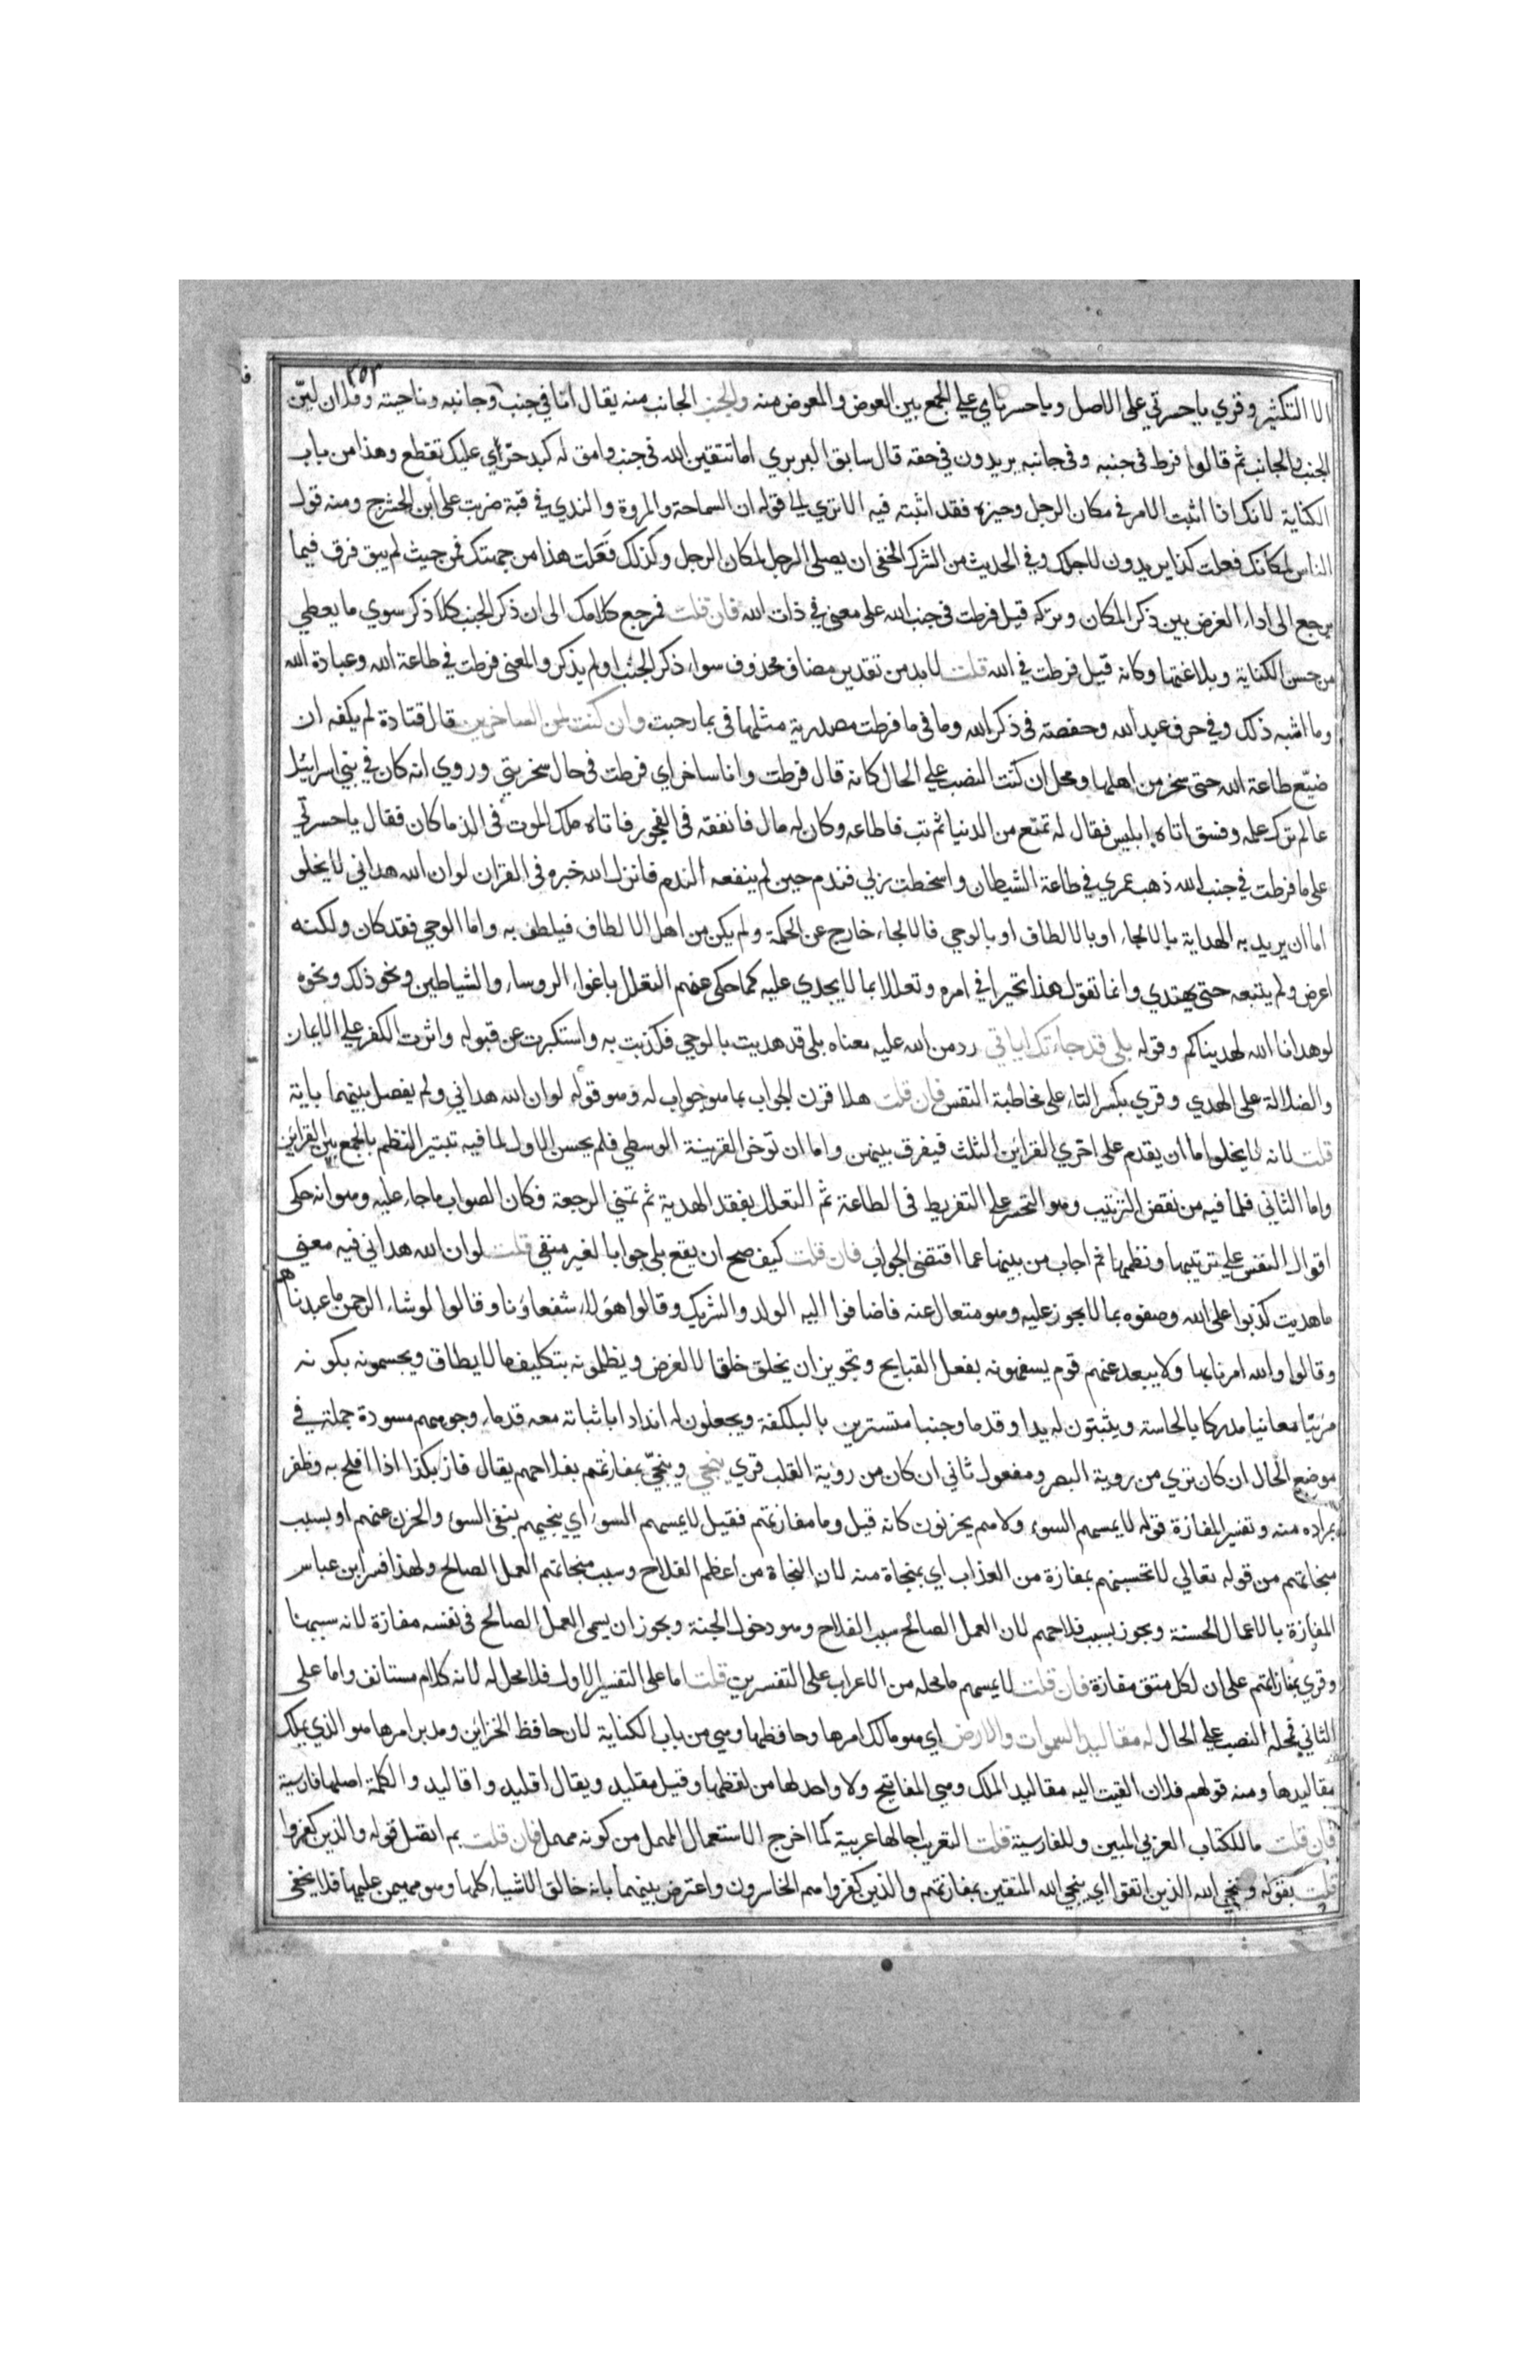 ٣٥٣
الا التكثير وقري ياحسرتي على الاصل وياحسرتاي علي الجمع بين العوض والمعوض منه والجنب الجانب منه يقال انا في جنب وجانبه وناحيته وفلان ليّن
الجنب والجانب ثم قالوا فرط في جنبه وفي جانبه يريدون في حقه قال سابق البربري اما تتقين الله في جنب وامق له كبد حرّي عليك تقطع وهذا من باب
الكناية لانك اذا اثبت الامر في مكان الرجل وحيزه فقد اثبته فيه الا تري الي قوله ان السماحة والمروة والندي في قبة ضربت على ابن الحشرج ومنه قول
الناس لمكانك فعلت كذا يريدون لاجلك وفي الحديث من الشرك الخفي ان يصلي الرجل لمكان الرجل وكذلك فعلت هذا من جهتك فمن حيث لم يبق فرق فيما
يرجع الى اداء الغرض بين ذكر المكان وتركه قيل فرطت في جنب الله على معنى في ذات الله فان قلت فرجع كلامك الى ان ذكر الجنب كلا ذكر سوي ما يعطي
من حسن الكناية وبلاغتها وكانه قيل فرطت في الله قلت لابد من تقدير مضاف محذوف سواء ذكر الجنب او لم يذكر والمعنى فرطت في طاعة الله وعبادة الله
وما اشبه ذلك وفي حرف عبد الله وحفصة في ذكر الله وما في ما فرطت مصدرية مثلها في بما رحبت وان كنت لمن الساخرين قال قتادة لم يكفه ان
ضيّع طاعة الله حتى سخر من اهلها ومحل ان كنت النصب علي الحال كانه قال فرطت وانا ساخر اي فرطت في حال سخريتي وروي انه كان في بني اسرائيل
عالم ترك علمه وفسق اتاه ابليس فقال له تمتع من الدنيا ثم تب فاطاعه وكان له مال فانفقه في الفجور فاتاه ملك الموت في الذ ما كان فقال ياحسرتي
على ما فرطت في جنب الله ذهب عمري في طاعة الشيطان واسخطت ربي فندم حين لم ينفعه الندم فانزل الله خبره في القران لو ان الله هداني لا يخلو
اما ان يريد به الهداية بالالجاء او بالالطاف او بالوحي فالالجاء خارج عن الحكمة ولم يكن من اهل الالطاف فيلطف به واما الوحي فقد كان ولكنه
اعرض ولم يتبعه حتى يهتدي وانما تقول هذا تحيرا في امره وتعللا بما لا يجدي عليه كما حكي عنهم التعلل باغواء الروساء والشياطين ونحو ذلك ونحوه
لو هدانا الله لهديناكم وقوله بلي قد جاءتك اياتي رد من الله عليه معناه بلي قد هديت بالوحي فكذبت به واستكبرت عن قبوله واثرت الكفر علي الايمان
والضلالة على الهدي وقري بكسر التاء على مخاطبة النفس فان قلت هلا قرن الجواب بما هو جواب له وهو قوله لو ان الله هداني ولم يفصل بينهما باية
قلت لانه لا يخلو اما ان يقدم على اخري القراين الثلث فيفرق بينهن واما ان تؤخر القرينة الوسطي فلم يحسن الاول لما فيه تبتير النظم بالجمع بين القراين
واما الثاني فلما فيه من نقض الترتيب وهو التحسر علي التفريط في الطاعة ثم التعلل بفقد الهدية ثم تمني الرجعة فكان الصواب ما جاء عليه وهو انه حكى
اقوال النفس علي ترتيبها ونظمها ثم اجاب من بينها عما اقتضى الجواب فان قلت كيف صح ان يقع بلي جوابا لغير منفي قلت لو ان الله هداني فيه معنى
ما هديت كذبوا على الله وصفوه بما لا يجوز عليه وهو متعال عنه فاضافوا اليه الولد والشريك وقالوا هؤلاء شفعاؤنا وقالوا لو شاء الرحمن ما عبدناهم
وقالوا والله امرنا بها ولا يبعد عنهم قوم يسفهونه بفعل القبايح وتجويز ان يخلق خلقا لا لغرض ويظلمونه بتكليف ما لا يطاق ويجسمونه بكونه
مرئيا معاينا مدركا بالحاسة ويثبتون له يدا وقدما وجنبا متسترين بالبلكفة ويجعلون له اندادا باثباتة معه قدماء وجوههم مسودة جملة في
موضع الحال ان كان تري من روية البصر ومفعول ثاني ان كان من رؤية القلب قري ينجي وينجّي بمفازتهم بفلاحهم يقال فاز بكذا اذا افلح به وظفر
بمراده منه وتفسير المفازة قوله لا يمسهم السوء ولا هم يحزنون كانه قيل وما مفازتهم فقيل لا يمسهم السوء اي ينجيهم بنفي السوء والحزن عنهم او بسبب
منجاتهم من قوله تعالي لا تحسبنهم بمفازة من العذاب اي بمنجاة منه لان النجاة من اعظم الفلاح وسبب منجاتهم العمل الصالح ولهذا فسر ابن عباس
المفازة بالاعمال الحسنة ويجوز بسبب فلاحهم لان العمل الصالح سبب الفلاح وهو دخول الجنة ويجوز ان يسمى العمل الصالح في نفسه مفازة لانه سببها
وقري بمفازاتهم على ان لكل متق مفازة فان قلت لا يمسهم ما محله من الاعراب على التفسرين قلت اما على التفسير الاول فلا محل له لانه كلام مستانف واما على
الثاني فمحله النصب علي الحال له مقاليد السموات والارض اي هو مالك امرها وحافظها وهي من باب الكناية لان حافظ الخزاين ومدبر امرها هو الذي يملك
مقاليدها ومنه قولهم فلان القيت اليه مقاليد الملك وهي المفاتيح ولا واحد لها من لفظها وقيل مقليد ويقال اقليد واقاليد والكلمة اصلها فارسية
فان قلت ما للكتاب العربي المبين وللفارسية قلت التعريب احالها عربية كما اخرج الاستعمال المهمل من كونه مهملا فان قلت بم اتصل قوله والذين كفروا
قلت بقوله وينجي الله الذين اتقوا اي ينجي الله المتقين بمفازتهم والذين كفروا هم الخاسرون واعترض بينهما بانه خالق الاشياء كلها وهو مهيمن عليها فلا يخفى